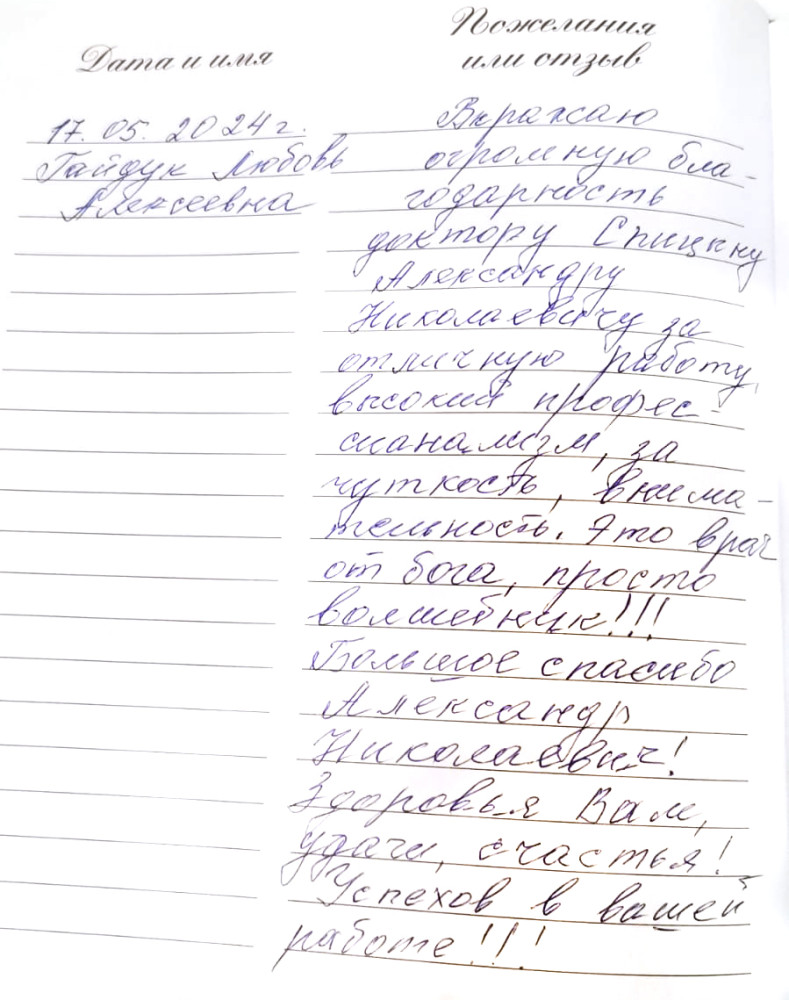 Дата и имя
Пожелания
или отзыв
17. 05. 2024 г.
Гайдук Любовь
Алексеевна
Выражаю
огромную бла-
годарность
доктору Спицыну
Александру
Николаевичу за
отличную работу,
высокий профес-
сианализм, за
чуткость, внима-
тельность. Это врач
от бога, просто
волшебник!!!
Большое спасибо
Александр
Николаевич!
Здоровья Вам,
удачи, счастья!
Успехов в вашей
работе!!!